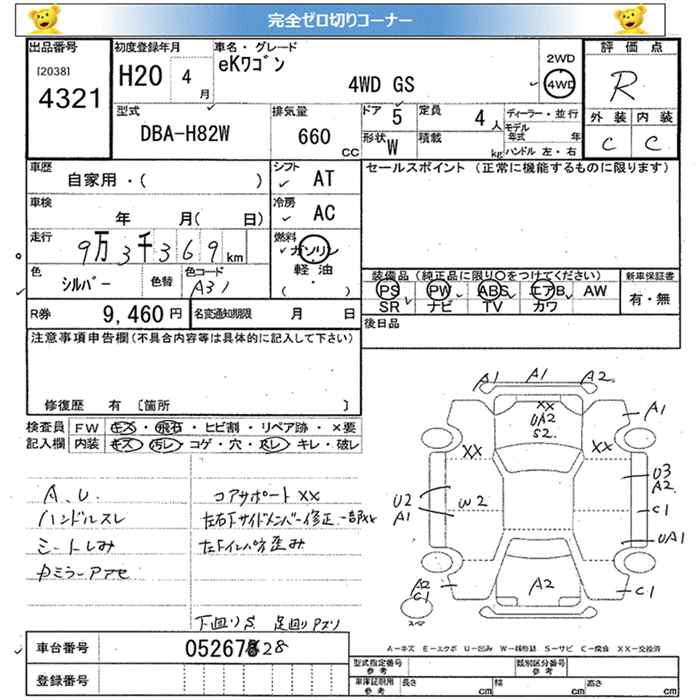 完全ゼロ切りコーナー
出品番号 初度登録年月 車名・グレード 2WD 評価点
[2038] 4321 H20 4月 eKワゴン 4WD GS 4WD R
型式 排気量 ドア 定員 ディーラー・並行 外装 内装
DBA-H82W 660 CC 5 4人 モデル年式 年 C C
形状 W 積載 kg ハンドル 左・右
車歴 シフト セールスポイント (正常に機能するものに限ります)
自家用・( ) AT
車検 冷房
年 月( 日) AC
走行 燃料
9万3千369km ガソリン
軽油
( )
色 色替 色コード 装備品(純正品に限り〇をつけてください) 新車保証書
シルバー A31 PS PW ABS エアB AW 有・無
SR ナビ TV カワ
R券 9,460円 名変通知期限 月 日 後日品
注意事項申告欄(不具合内容等は具体的に記入して下さい)
修復歴 有 〔箇所 〕
検査員 FW キズ・飛石・ヒビ割・リペア跡・×要
記入欄 内装 キズ・汚レ・コゲ・穴・スレ・キレ・破レ
A1 A2
XX
UA2
S2
A1
XX XX
U3
A2
U2
A1
W2
C1
UA1
A2
C1
A2
C1
スペア
A、U コアサポートXX
ハンドルスレ 左右下サイドメンバー修正一部XX
シートしみ 左下インパネ歪み
下回りS 足回りアブリ
A-キズ E-エクボ U-凹み W-補修跡 S-サビ C-腐食 XX-交換済
車台番号 052676828
登録番号
型式指定番号 参考 類別区分番号 参考
車庫証明用 参考 長さ cm 幅 cm 高さ cm